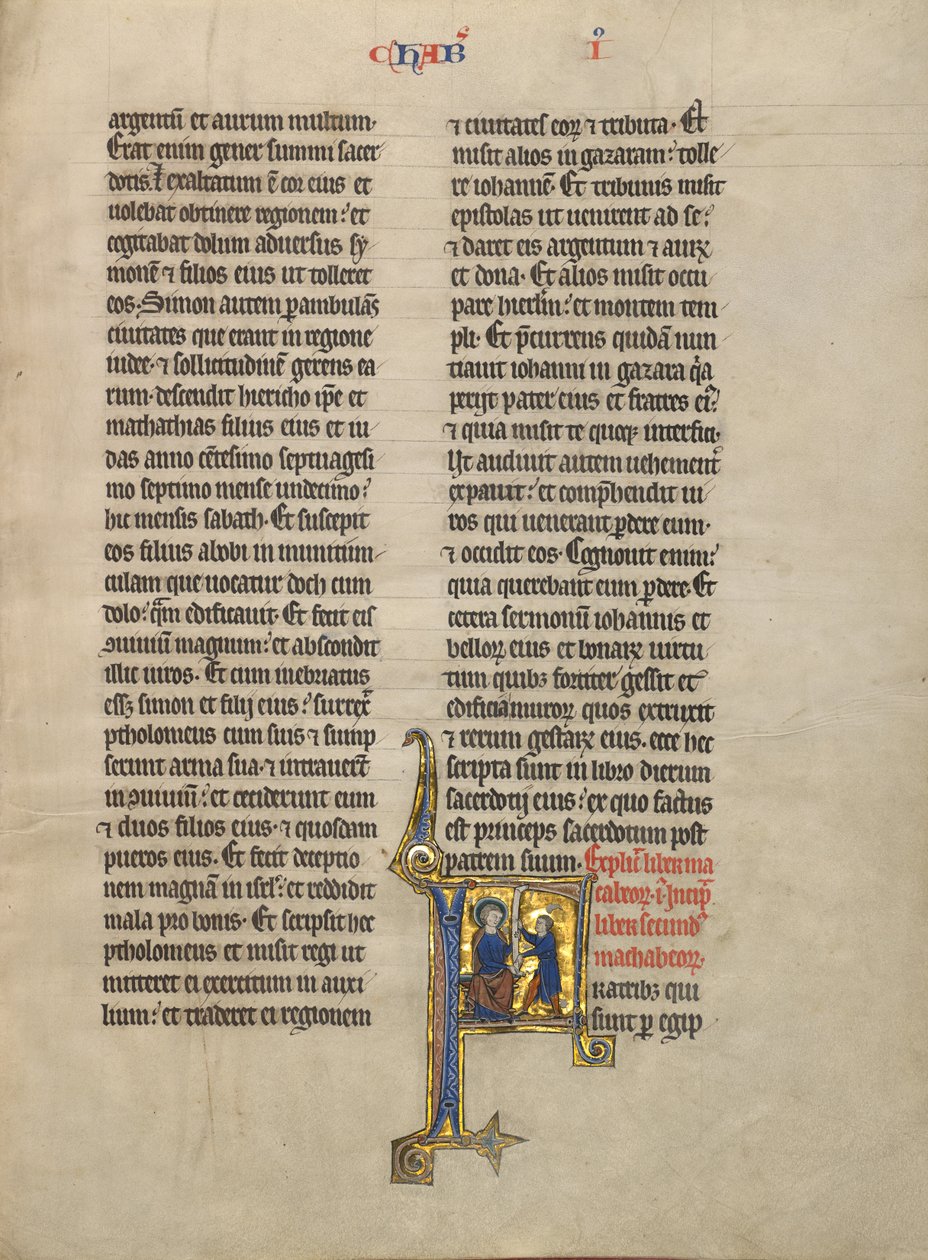 CHABS I
argentū et aurum multum·
Erat enim gener summi sacer
dotis. Et exaltatum ē cor eius et
uolebat obtinere regionem: et
cogitabat dolum aduersus sy
monē ⁊ filios eius ut tolleret
eos· Simon autem ꝑambulās
ciuitates que erant in regione
iudee· ⁊ sollicitudinē gerens ea
rum· descendit hiericho ip̄e et
mathathias filius eius et iu
das anno cētesimo septuagesi
mo septimo mense undecimo:
hic mensis sabath· Et suscepit
eos filius abobi in munitiun
culam que uocatur doch cum
dolo: quam edificauit· Et fecit eis
ↄuiuiū magnum: et abscondit
illic uiros· Et cum inebriatus
essꝫ simon et filij eius: surrex̄
ptholomeus cum suis ⁊ sump
serunt arma sua· ⁊ intrauerūt
in ↄuiuiū: et ceciderunt eum
⁊ duos filios eius· ⁊ quosdam
pueros eius· Et fecit deceptio
nem magnā in isrl̄: et reddidit
mala pro bonis· Et scripsit hec
ptholomeus et misit regi ut
mitteret ei exercitum in auxi
lium: et traderet ei regionem
⁊ ciuitates eoꝝ ⁊ tributa· Et
misit alios in gazaram: tolle
re iohannē· Et tribunis misit
epistolas ut uenirent ad se:
⁊ daret eis argentum ⁊ auꝝ
et dona· Et alios misit occu
pare hierl̄m: et montem tem
pli· Et p̄currens quidā nun
tiauit iohanni in gazara qͣa
perijt pater eius et fratres ei᷒:
⁊ quia misit te quoqꝫ interfici·
Ut audiuit autem uehement̄
expauit: et comp̄hendit ui
ros qui uenerant ꝑdere eum·
⁊ occidit eos· Cognouit enim:
quia querebant eum ꝑdere· Et
cetera sermonū iohannis et
belloꝝ eius et bonaꝝ uirtu
tum quibꝫ fortiter gessit et
edificia muroꝝ quos extruxit
⁊ rerum gestaꝝ eius· ecce hec
scripta sunt in libro dierum
sacerdotij eius: ex quo factus
est princeps sacerdotum post
patrem suum· Explic̄ liber ma
cabeoꝝ· i᷒ Incip̄
liber secund᷒
machabeoꝝ·
Fratribꝫ qui
sunt ꝑ egip